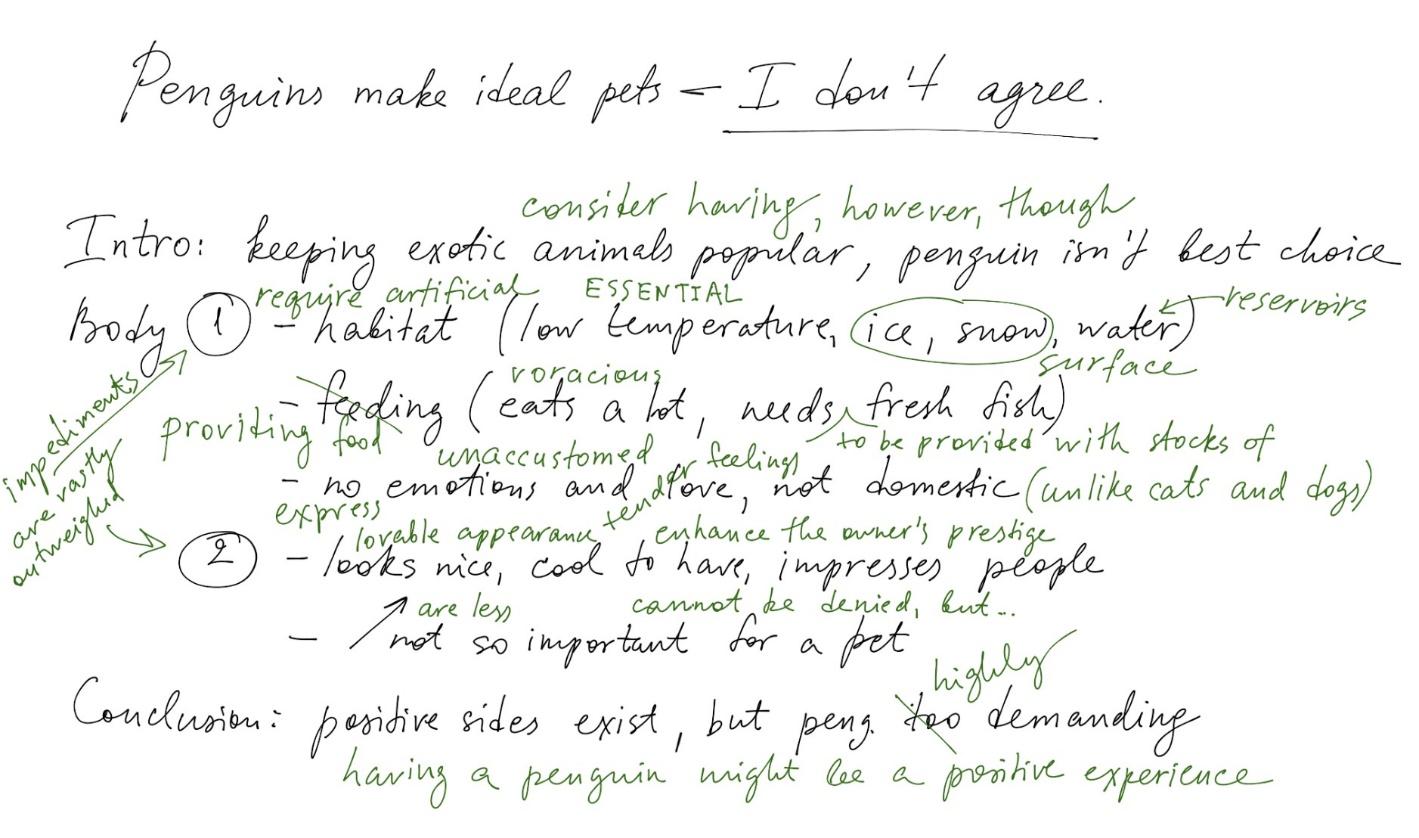 Penguins make ideal pets – I don't agree.
consider having, however, though
Intro: keeping exotic animals popular, penguin isn't best choice
require artificial ESSENTIAL reservoirs
Body 1 – habitat (low temperature, ice, snow, water)
voracious surface
– feeding (eats a lot, needs fresh fish)
providing food to be provided with stocks of
unaccustomed or feelings
– no emotions and love, not domestic (unlike cats and dogs)
express tend
impediments are vastly outweighed
lovable appearance enhance the owner's prestige
2 – looks nice, cool to have, impresses people
are less cannot be denied, but...
– not so important for a pet
highly
Conclusion: positive sides exist, but peng. too demanding
having a penguin might be a positive experience